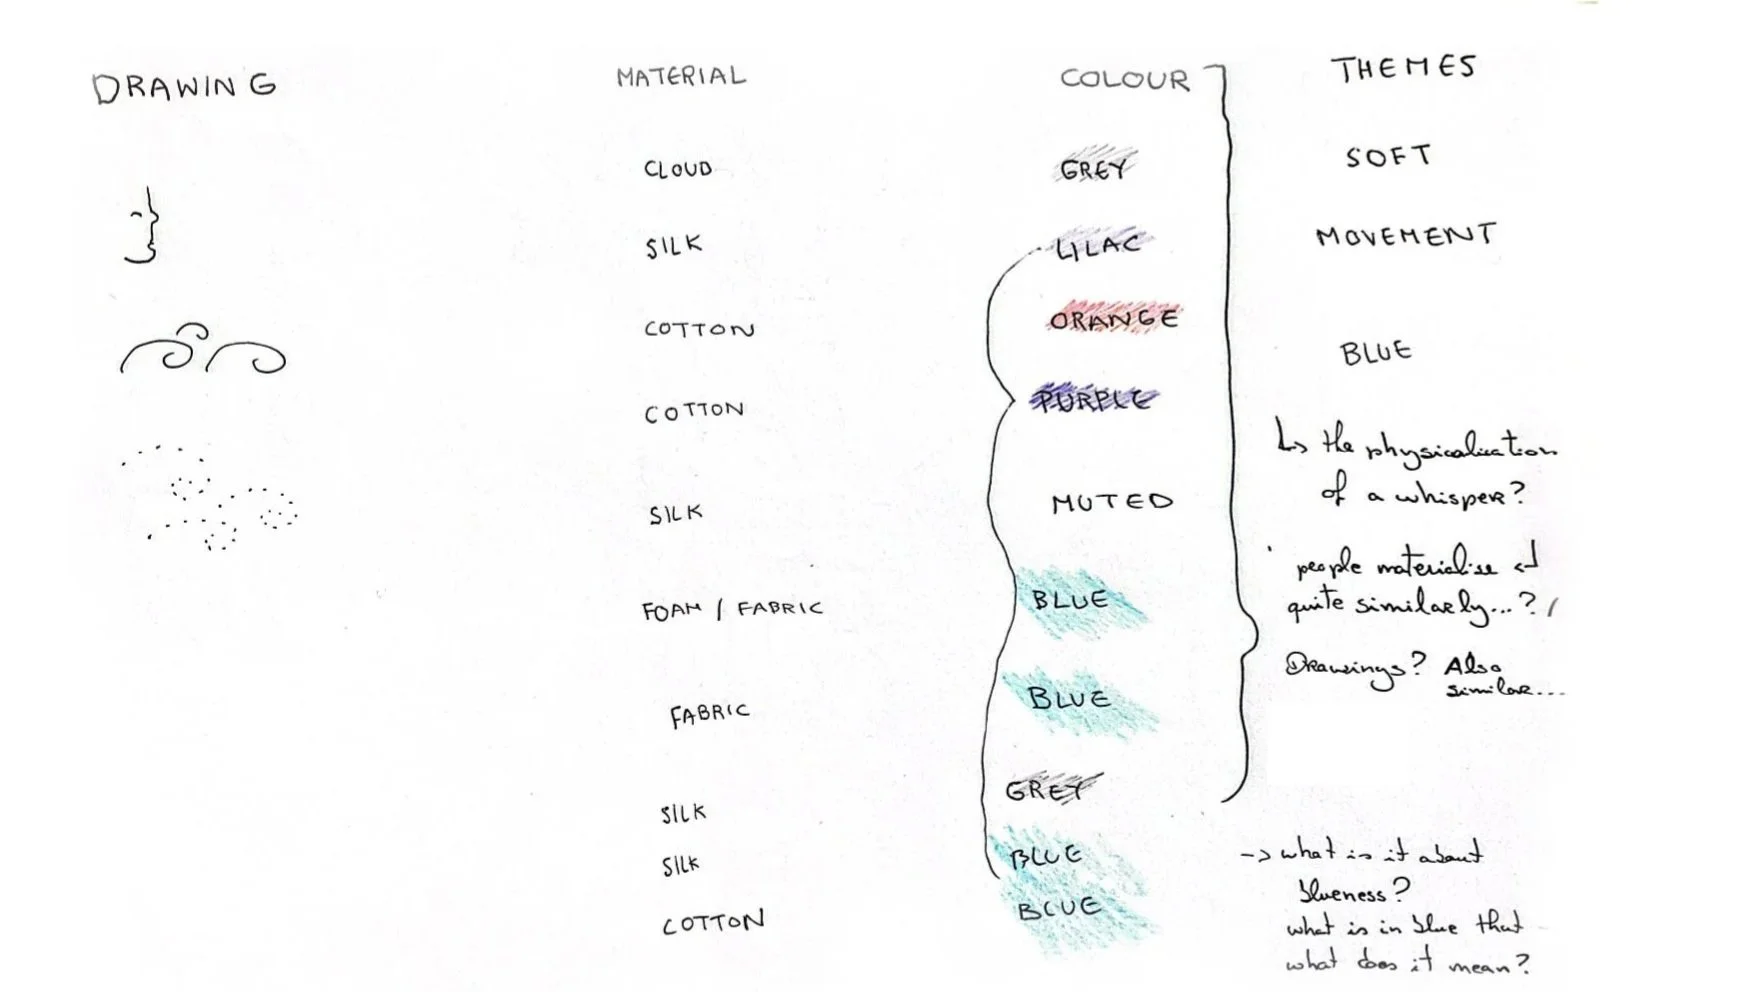 DRAWING
MATERIAL
COLOUR
THEMES
CLOUD
GREY
SOFT
SILK
LILAC
MOVEMENT
COTTON
ORANGE
BLUE
COTTON
PURPLE
↳ the physicalisation
of a whisper?
SILK
MUTED
people materialise ↲
quite similarly...? /
FOAM / FABRIC
BLUE
Drawings? Also
similar...
FABRIC
BLUE
SILK
GREY
SILK
BLUE
-> what is it about
blueness?
COTTON
BLUE
what is in blue that
what does it mean?